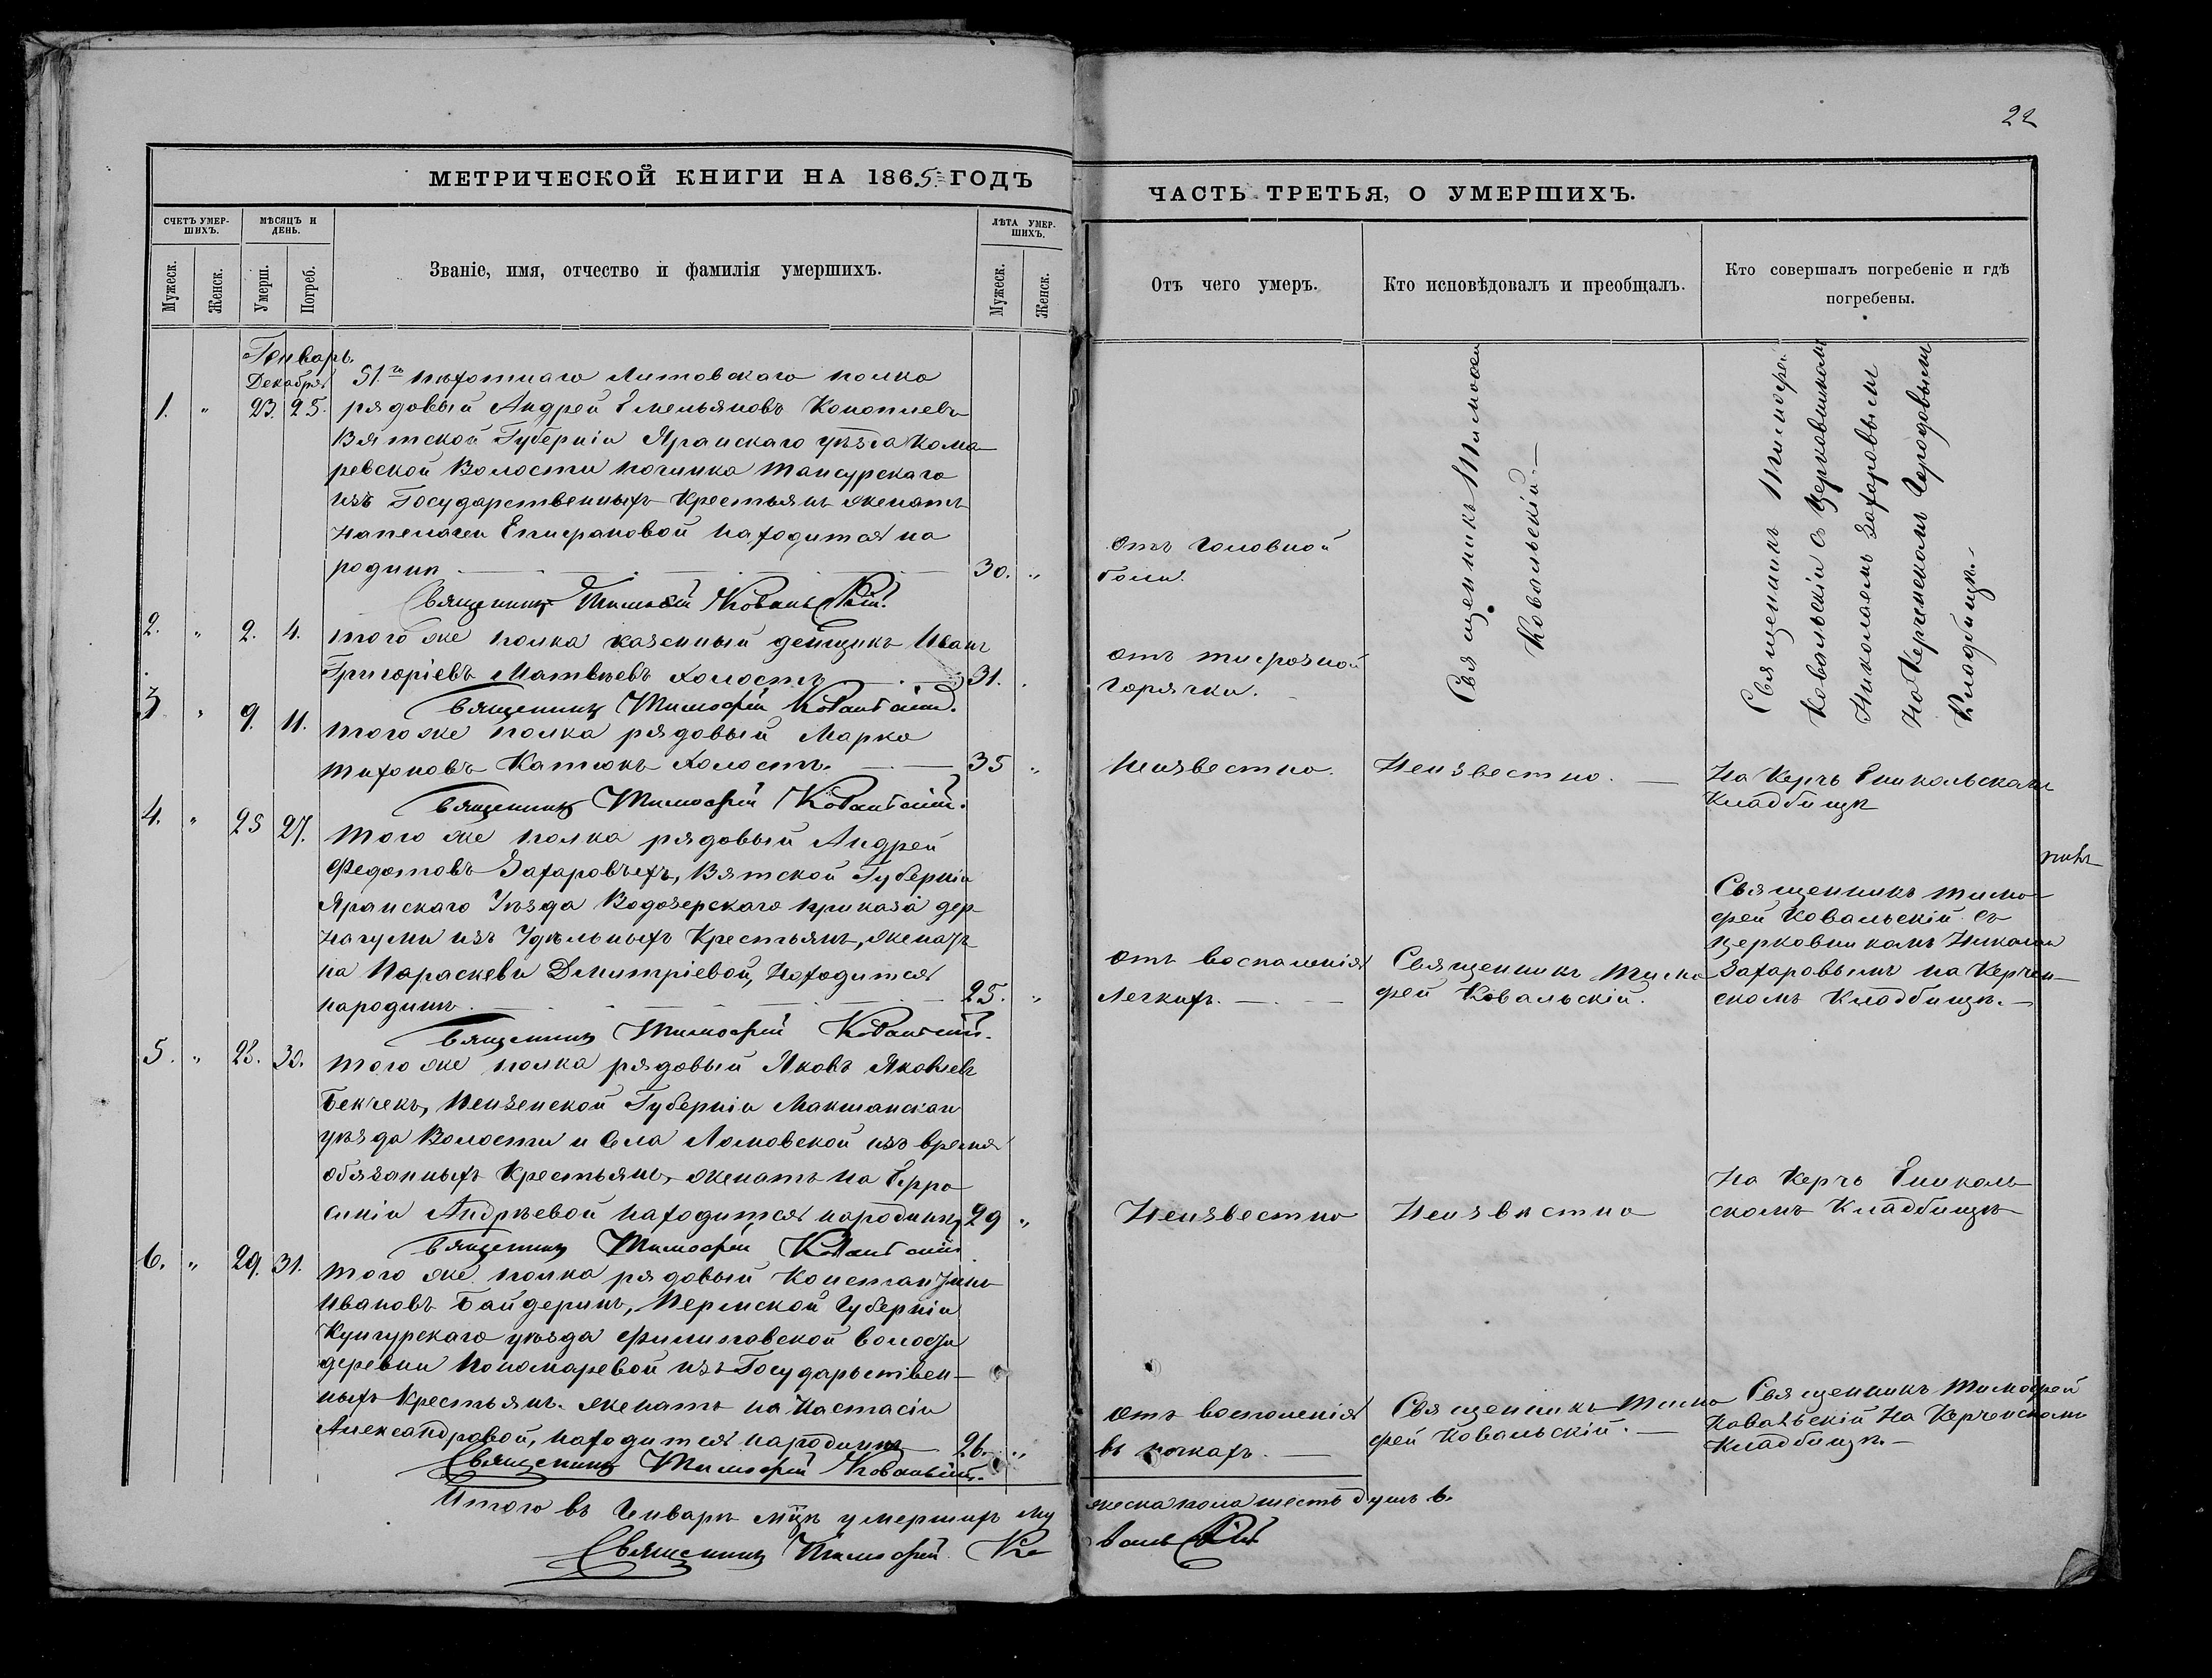 22
МЕТРИЧЕСКОЙ КНИГИ НА 1865 ГОДЪ
ЧАСТЬ ТРЕТЬЯ, О УМЕРШИХЪ.
СЧЕТЪ УМЕР-
ШИХЪ.
МѢСЯЦЪ И
ДЕНЬ.
Званіе, имя, отчество и фамилія умершихъ.
ЛѢТА УМЕР-
ШИХЪ.
Мужеск.
Женск.
Умерш.
Погреб.
Мужеск.
Женск.
Отъ чего умеръ.
Кто исповѣдовалъ и преобщалъ.
Кто совершалъ погребеніе и гдѣ
погребены.
Генварь.
Декабря
1. " 23. 25.
51го пѣхотнаго Литовскаго полка
рядовый Андрей Емельяновъ Коноплевъ
Вятской Губерніи Яранскаго уѣзда Кома
ревской Волости починка
изъ Государственныхъ Крестьянъ женатъ
Епифановой находится на
родинѣ 30. "
Отъ головной
боли.
Священникъ Тимофей
Ковальскій.
Священникъ Тимофей
Ковальскій съ Церковникомъ
Николаемъ Захаровымъ
На Керченскомъ Городовымъ
Кладбищѣ.
Священникъ Тимофей Ковальскій.
2. " 2. 4. того же полка казенный денщикъ Иванъ
Григоріевъ Матвѣевъ холостъ 31.
отъ тифозной
горячки.
Священникъ Тимофей Ковальскій.
3 " 9. 11. того же полка рядовый Марко
Тихоновъ Катюкъ холостъ. 35 "
Неизвестно.
Неизвестно.
На Керчь Еникольскомъ
Кладбищѣ
Священникъ Тимофей Ковальскій.
4. " 25 27. того же полка рядовый Андрей
Федотовъ Захаровыхъ, Вятской Губерніи
Яранскаго Уѣзда Водозерскаго приказа дер-
изъ Удѣльныхъ Крестьянъ, женатъ
на Параскеви Дмитріевой, Находится
народинѣ. 25. "
отъ воспаленія
легкихъ.
Священникъ Тимо
фей Ковальскій.
Священникъ Тимо
фей Ковальскій съ
церковникомъ Николаемъ
Захаровымъ на Керчен-
скомъ Кладбищѣ.
Священникъ Тимофей Ковальскій.
5. " 28. 30. того же полка рядовый Яковъ Яковлевъ
Бекчекъ, Пензенской Губерніи Мокшанскаго
уѣзда Волости и Села Ломовской изъ время
обязанныхъ Крестьянъ, женатъ на Евро
синіи Андрѣевой находится народинѣ 29 "
Неизвестно
Неизвѣстно
На Керчь Ениколь
скомъ Кладбищѣ
Священникъ Тимофей Ковальскій
6. " 29. 31. того же полка рядовый Константинъ
Ивановъ Байдеринъ, Пермской Губерніи
Кунгурскаго уѣзда Филиповской волости
деревни Пономаревой изъ Государьствен-
ныхъ Крестьянъ. женатъ на Настасіи
Александровой, находится народинѣ 26. "
отъ воспаленія
въ почкахъ.
Священникъ Тимо
фей Ковальскій.
Священникъ Тимофей
Ковальскій На Керченскомъ
Кладбищѣ.
Священникъ Тимофей Ковальскій.
Итого въ Генварѣ мцѣ умершихъ му
жеска пола шесть душъ 6.
Священникъ Тимофей Ко
вальскій